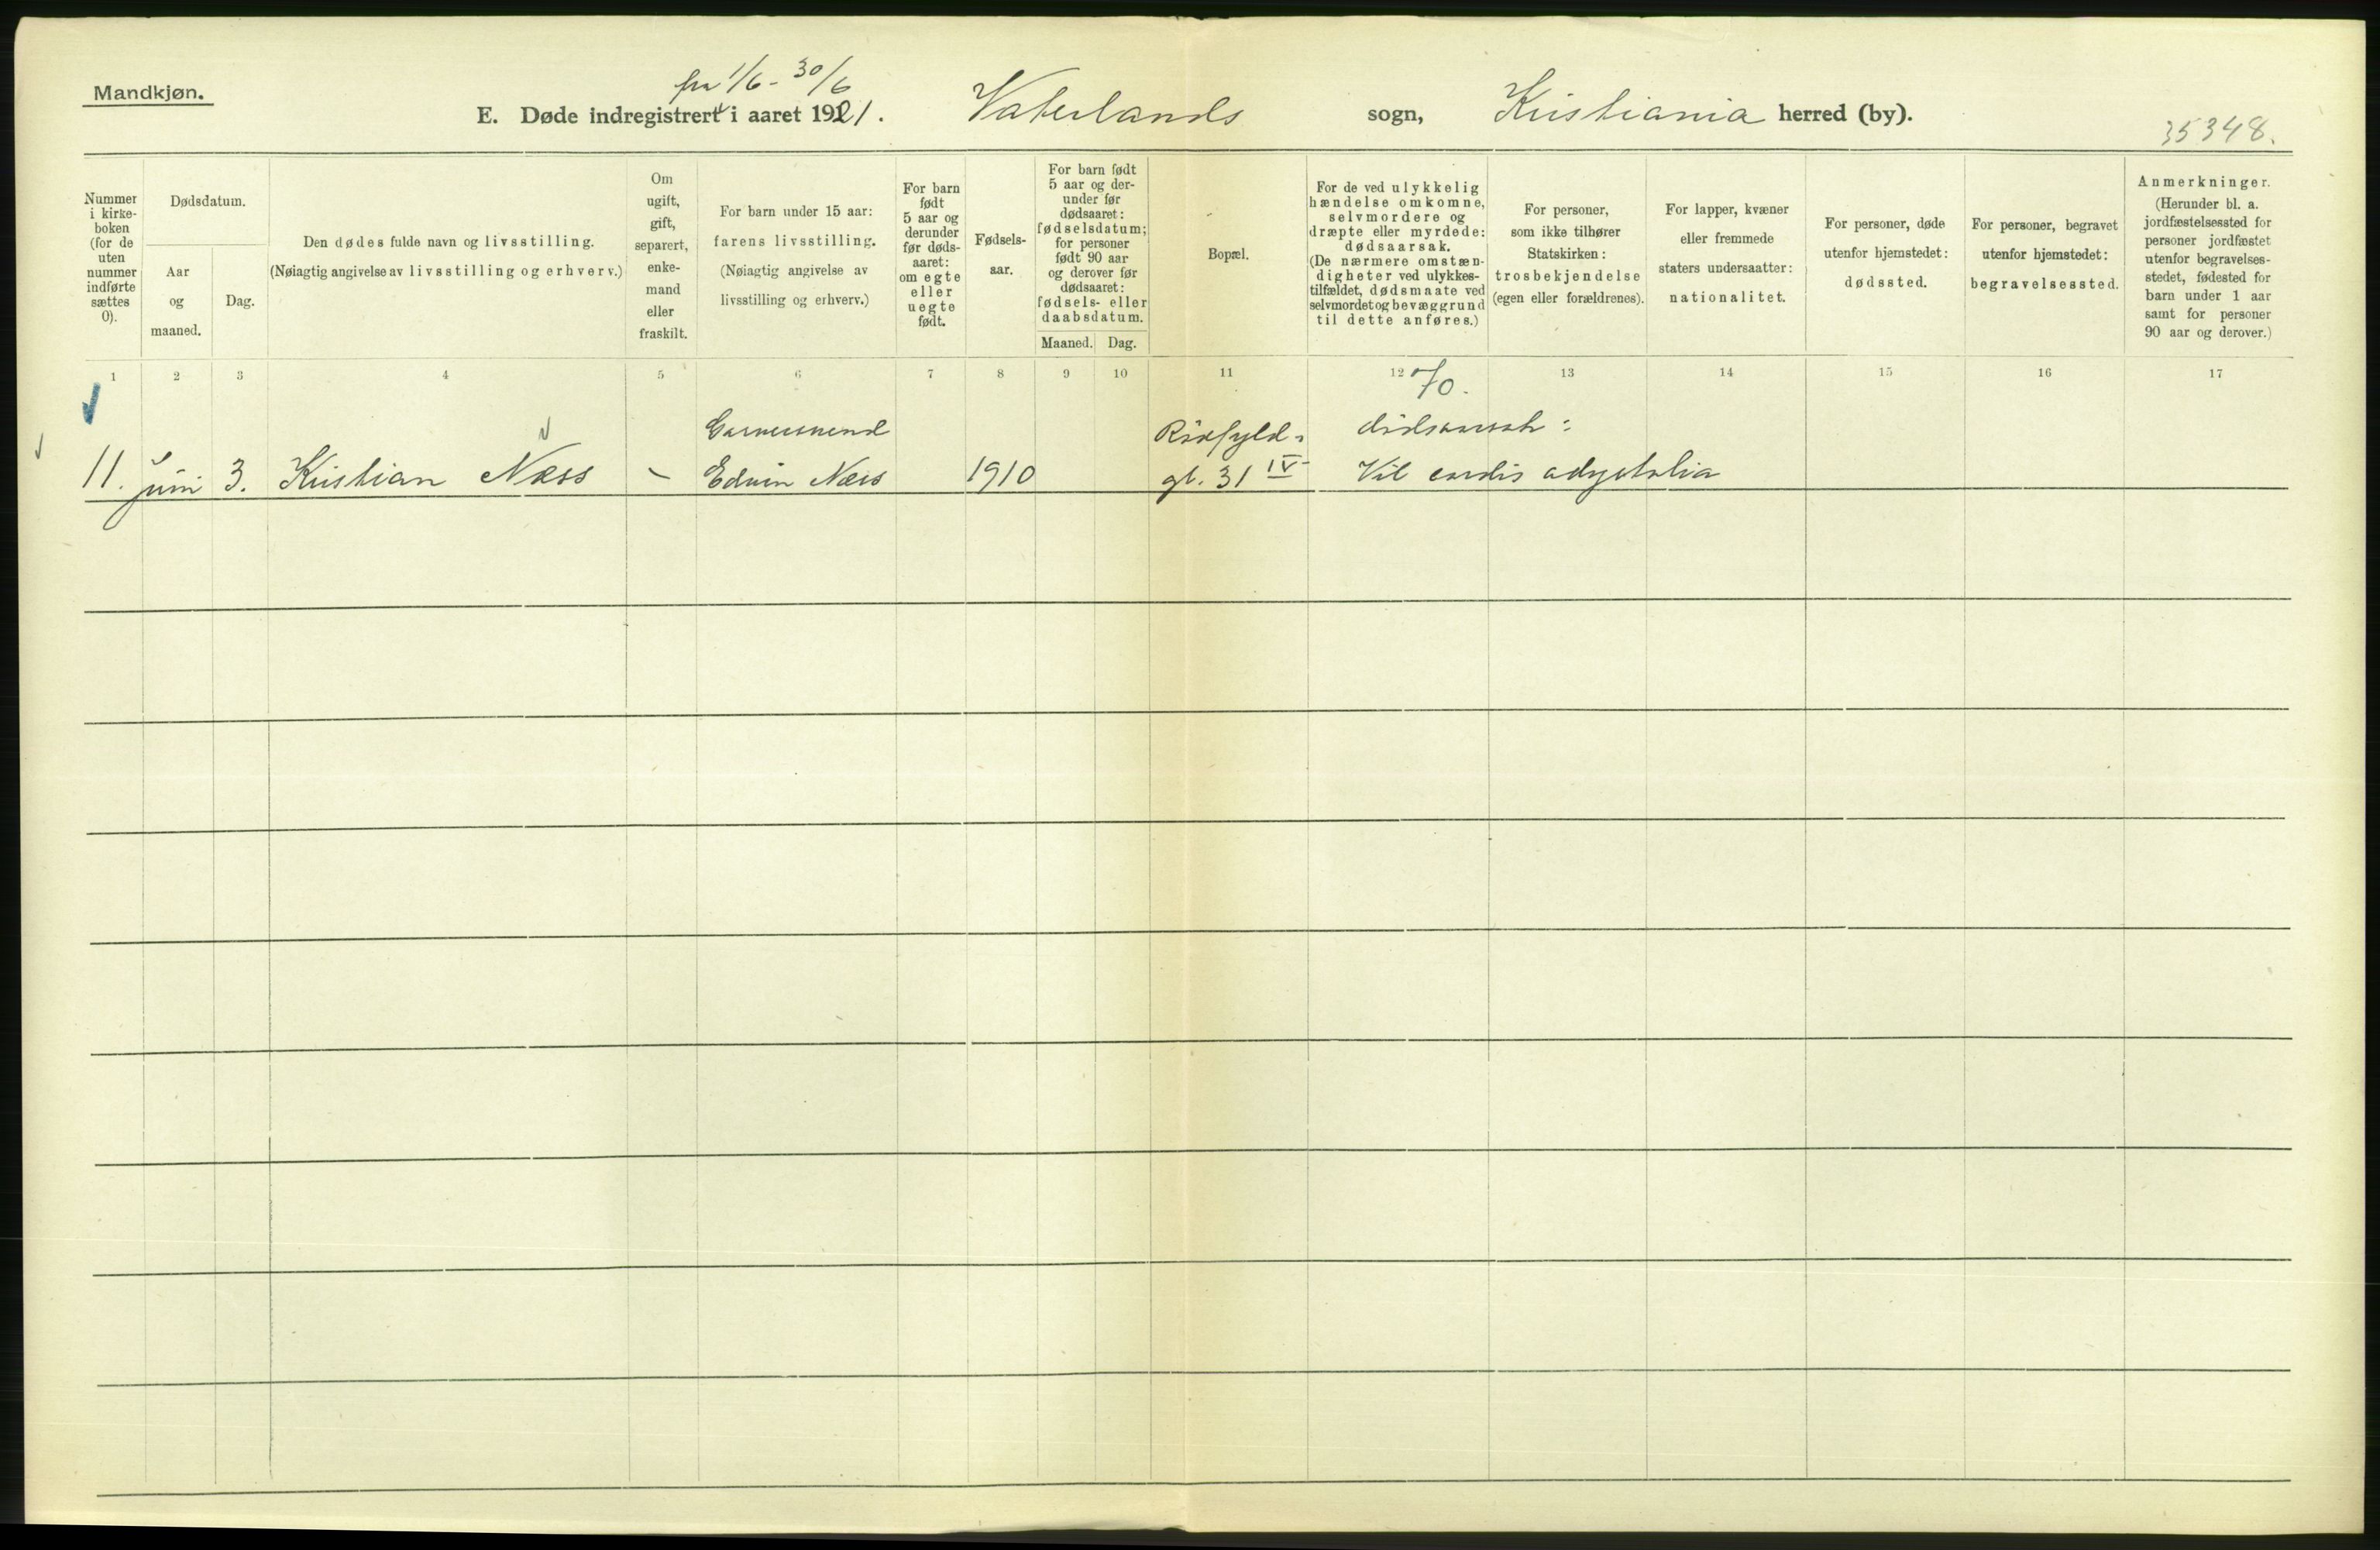 Mandkjøn.
fra 1/6 - 30/6
E. Døde indregistrert i aaret 1921. Vaterlands sogn, Kristiania herred (by).
35348.
Nummer i kirke-boken (for de uten nummer indførte sættes 0).
Dødsdatum.
Aar og maaned.
Dag.
Den dødes fulde navn og livsstilling.
(Nøiagtig angivelse av livsstilling og erhverv.)
Om ugift, gift, separert, enke-mand eller fraskilt.
For barn under 15 aar:
farens livsstilling.
(Nøiagtig angivelse av
livsstilling og erhverv.)
For barn født 5 aar og derunder før døds-aaret: om egte eller uegte født.
Fødsels-aar.
For barn født 5 aar og der-under før dødsaaret: fødselsdatum; for personer født 90 aar og derover før dødsaaret: fødsels- eller daabsdatum.
Maaned. Dag.
Bopæl.
For de ved ulykkelig
hændelse omkomne,
selvmordere og
dræpte eller myrdede:
dødsaarsak.
(De nærmere omstæn-
digheter ved ulykkes-
tilfældet, dødsmaate ved
selvmordet og bevæggrund
til dette anføres.)
For personer,
som ikke tilhører
Statskirken:
trosbekjendelse
(egen eller forældrenes).
For lapper, kvæner
eller fremmede
staters undersaatter:
nationalitet.
For personer, døde
utenfor hjemstedet:
dødssted.
For personer, begravet
utenfor hjemstedet:
begravelsessted.
Anmerkninger.
(Herunder bl. a.
jordfæstelsessted for
personer jordfæstet
utenfor begravelses-
stedet, fødested for
barn under 1 aar
samt for personer
90 aar og derover.)
1 2 3 4 5 6 7 8 9 10 11 12 13 14 15 16 17
70.
Garversvend Rødfyld- dødsaarsak:
11. juni 3. Kristian Næss - Edvin Næss 1910 gt. 31 IV Vit cordis